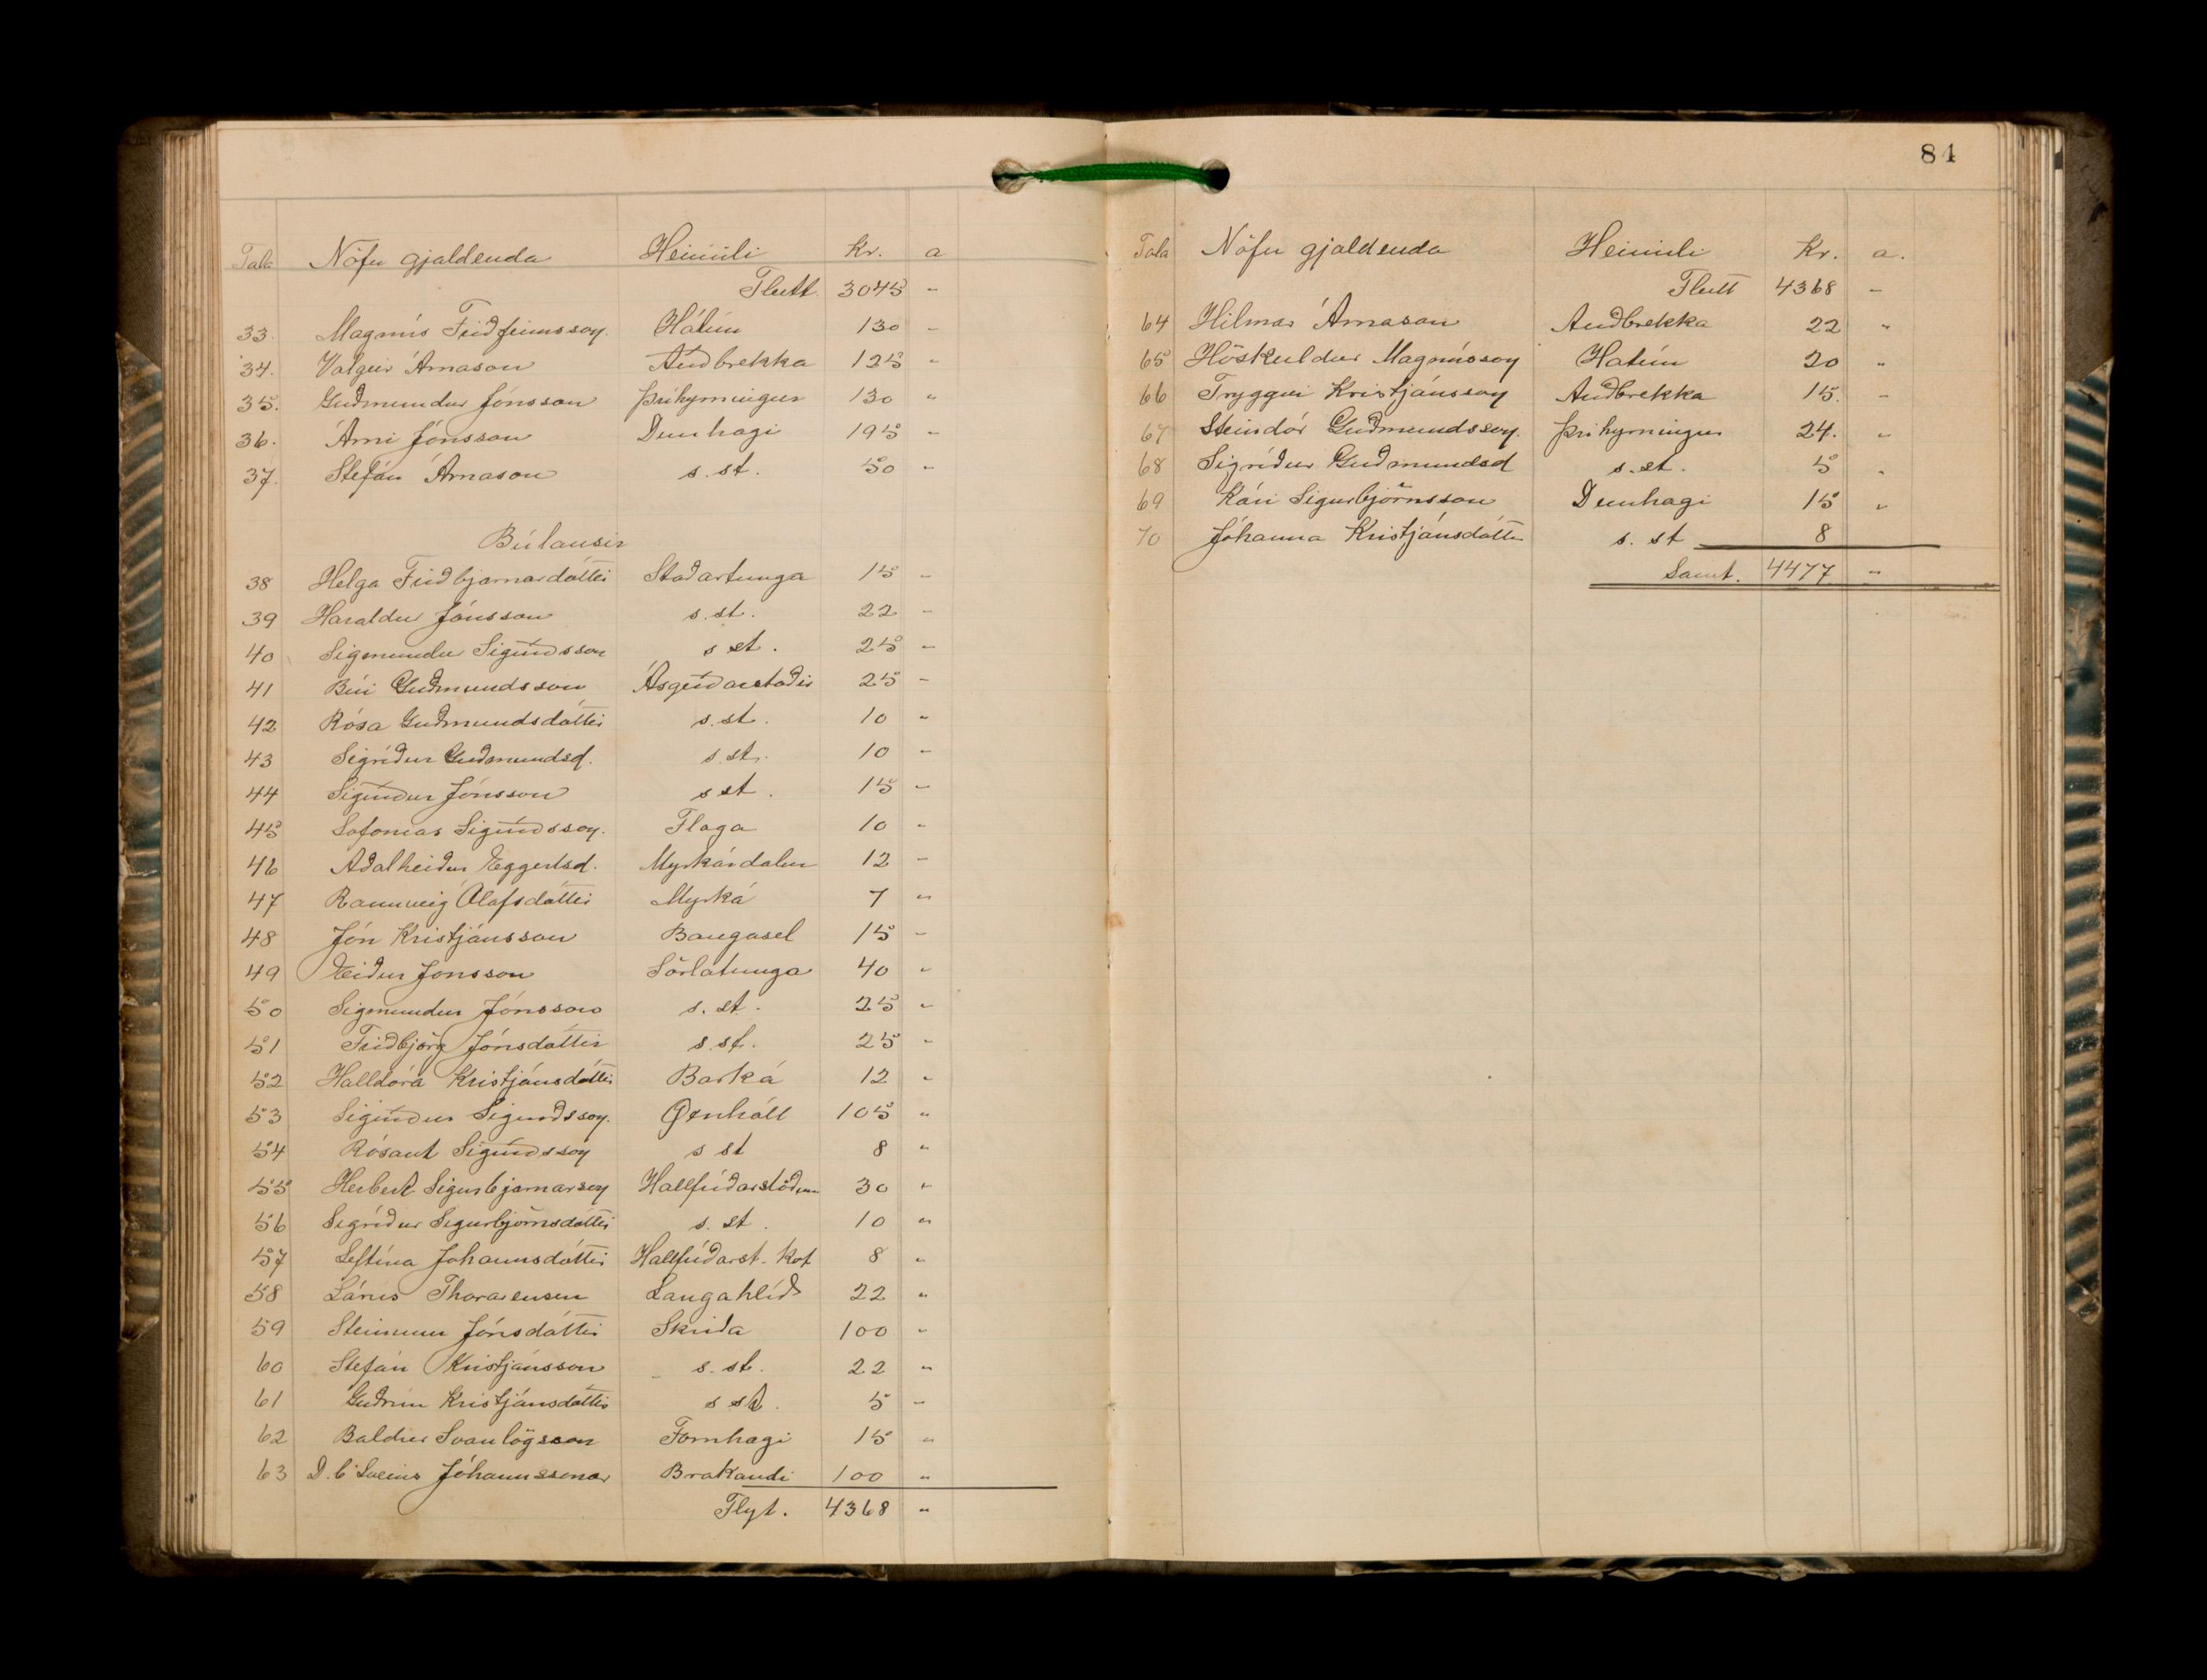 Tala Nöfn gjaldenda Heimili Kr. a
Flutt 3045 -
33. Magnús Friðfinnsson. Hátún 130 -
34. Valgeir Árnason Auðbrekka 125 "
35. Guðmundur Jónsson Þríhyrningur 130 "
36. Árni Jónsson Dunhagi 195 -
37. Stefán Árnason s. st. 50 "
Búlausir
38 Helga Friðbjarnardóttir Staðartunga 15 -
39 Haraldur Jónsson s. st. 22 -
40 Sigmundur Sigurðsson s st. 25 -
41 Búi Guðmundsson Ásgerðarstaðir 25 -
42 Rósa Guðmundsdóttir s. st. 10 "
43 Sigríður Guðmundsd. s. st. 10 -
44 Sigurður Jónsson s st. 15 -
45 Sofonías Sigurðsson. Flaga 10 "
46 Aðalheiður Eggertsd. Myrkárdalur 12 -
47 Rannveig Ólafsdóttir Myrká 7 "
48 Jón Kristjánsson Baugasel 15 -
49 Eiður Jónsson Sörlatunga 40 "
50 Sigmundur Jónsson s. st. 25 "
51 Friðbjörg Jónsdóttir s. st. 25 "
52 Halldóra Kristjánsdóttir Barká 12 "
53 Sigurður Sigurðsson. Öxnhóll 105 "
54 Rósant Sigurðsson s st 8 "
55 Herbert Sigurbjarnarson Hallfríðarstöðum 30 "
56 Sigríður Sigurbjörnsdóttir s. st. 10 "
57 Septína Jóhannsdóttir Hallfríðarst. Kot 8 "
58 Lárus Thorarensen Langahlíð 22 "
59 Steinunn Jónsdóttir Skriða 100 "
60 Stefán Kristjánsson s. st. 22 "
61 Guðrún Kristjánsdóttir s st. 5 -
62 Baldur Svanlögsson Fornhagi 15 "
63 D.b. Jóhannssonar Brakandi 100 "
Flyt. 4368 "
84
Tala Nöfn gjaldenda Heimili Kr. a.
Flutt 4368 -
64 Hilmar Árnason Auðbrekka 22 "
65 Höskuldur Magnússon Hatún 20 "
66 Tryggvi Kristjánsson Auðbrekka 15. -
67 Steindór Guðmundsson. Þríhyrningur 24. "
68 Sigríður Guðmundsd s. st. 5 "
69 Kári Sigurbjörnsson Dunhagi 15 "
70 Jóhanna Kristjánsdóttir s. st 8
Samt. 4477 -